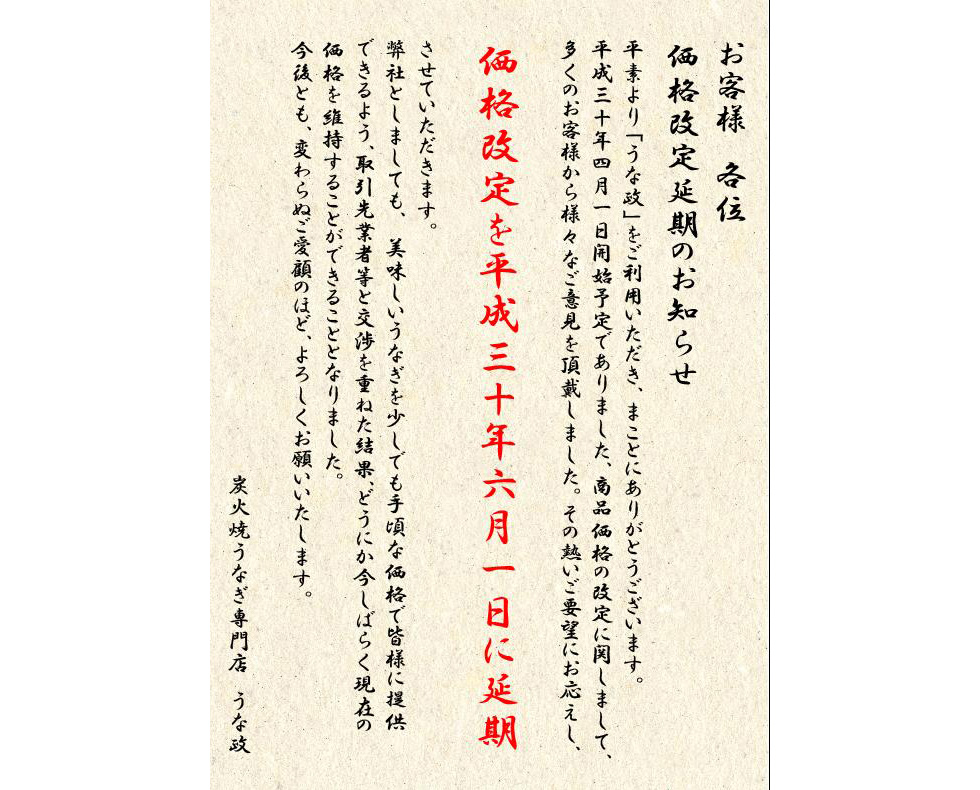 お客様　各位
価格改定延期のお知らせ
平素より「うな政」をご利用いただき、まことにありがとうございます。
平成三十年四月一日開始予定でありました、商品価格の改定に関しまして、
多くのお客様から様々なご意見を頂戴しました。その熱いご要望にお応えし、
価格改定を平成三十年六月一日に延期
させていただきます。
弊社としましても、美味しいうなぎを少しでも手頃な価格で皆様に提供
できるよう、取引先業者等と交渉を重ねた結果、どうにか今しばらく現在の
価格を維持することができることとなりました。
今後とも、変わらぬご愛顧のほど、よろしくお願いいたします。
炭火焼うなぎ専門店　うな政